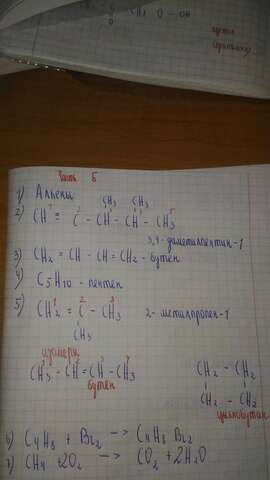 Часть Б
1) Алкены
CH3 CH3
2) CH ≡ C - CH - CH - CH3
3,4-диметилпентин-1
3) CH2 = CH - CH = CH2 - бутен
4) C5H10 - пентен
5) CH2 = C - CH3 2-метилпропен-1
CH3
изомеры
CH3 - CH = CH - CH3
бутен
CH2 - CH2
CH2 - CH2
циклобутан
6) C4H8 + Br2 → C4H8Br2
7) CH4 + 2O2 → CO2 + 2H2O